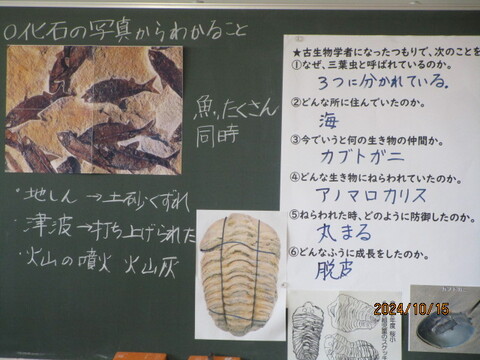 ○化石の写真からわかること
魚、たくさん
同時
・地しん→土砂くずれ
・津波→打ち上げられた
・火山の噴火 火山灰
★古生物学者になったつもりで、次のことを
①なぜ、三葉虫と呼ばれているのか。
3つに分かれている。
②どんな所に住んでいたのか。
海
③今でいうと何の生き物の仲間か。
カブトガニ
④どんな生き物にねらわれていたのか。
アノマロカリス
⑤ねらわれた時、どのように防御したのか。
丸まる
⑥どんなふうに成長をしたのか。
脱皮
2024/10/15